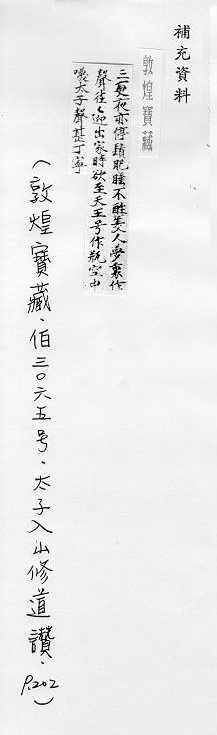 補充資料
敦煌寶藏
三更夜亦停嬪妃睡不醒美人夢裏作
聲往〻迎出家時欲至天王号作瓶空中
喚太子聲甚丁寧
(敦煌寶藏.伯三〇六五号.太子入山修道讚.P.202)